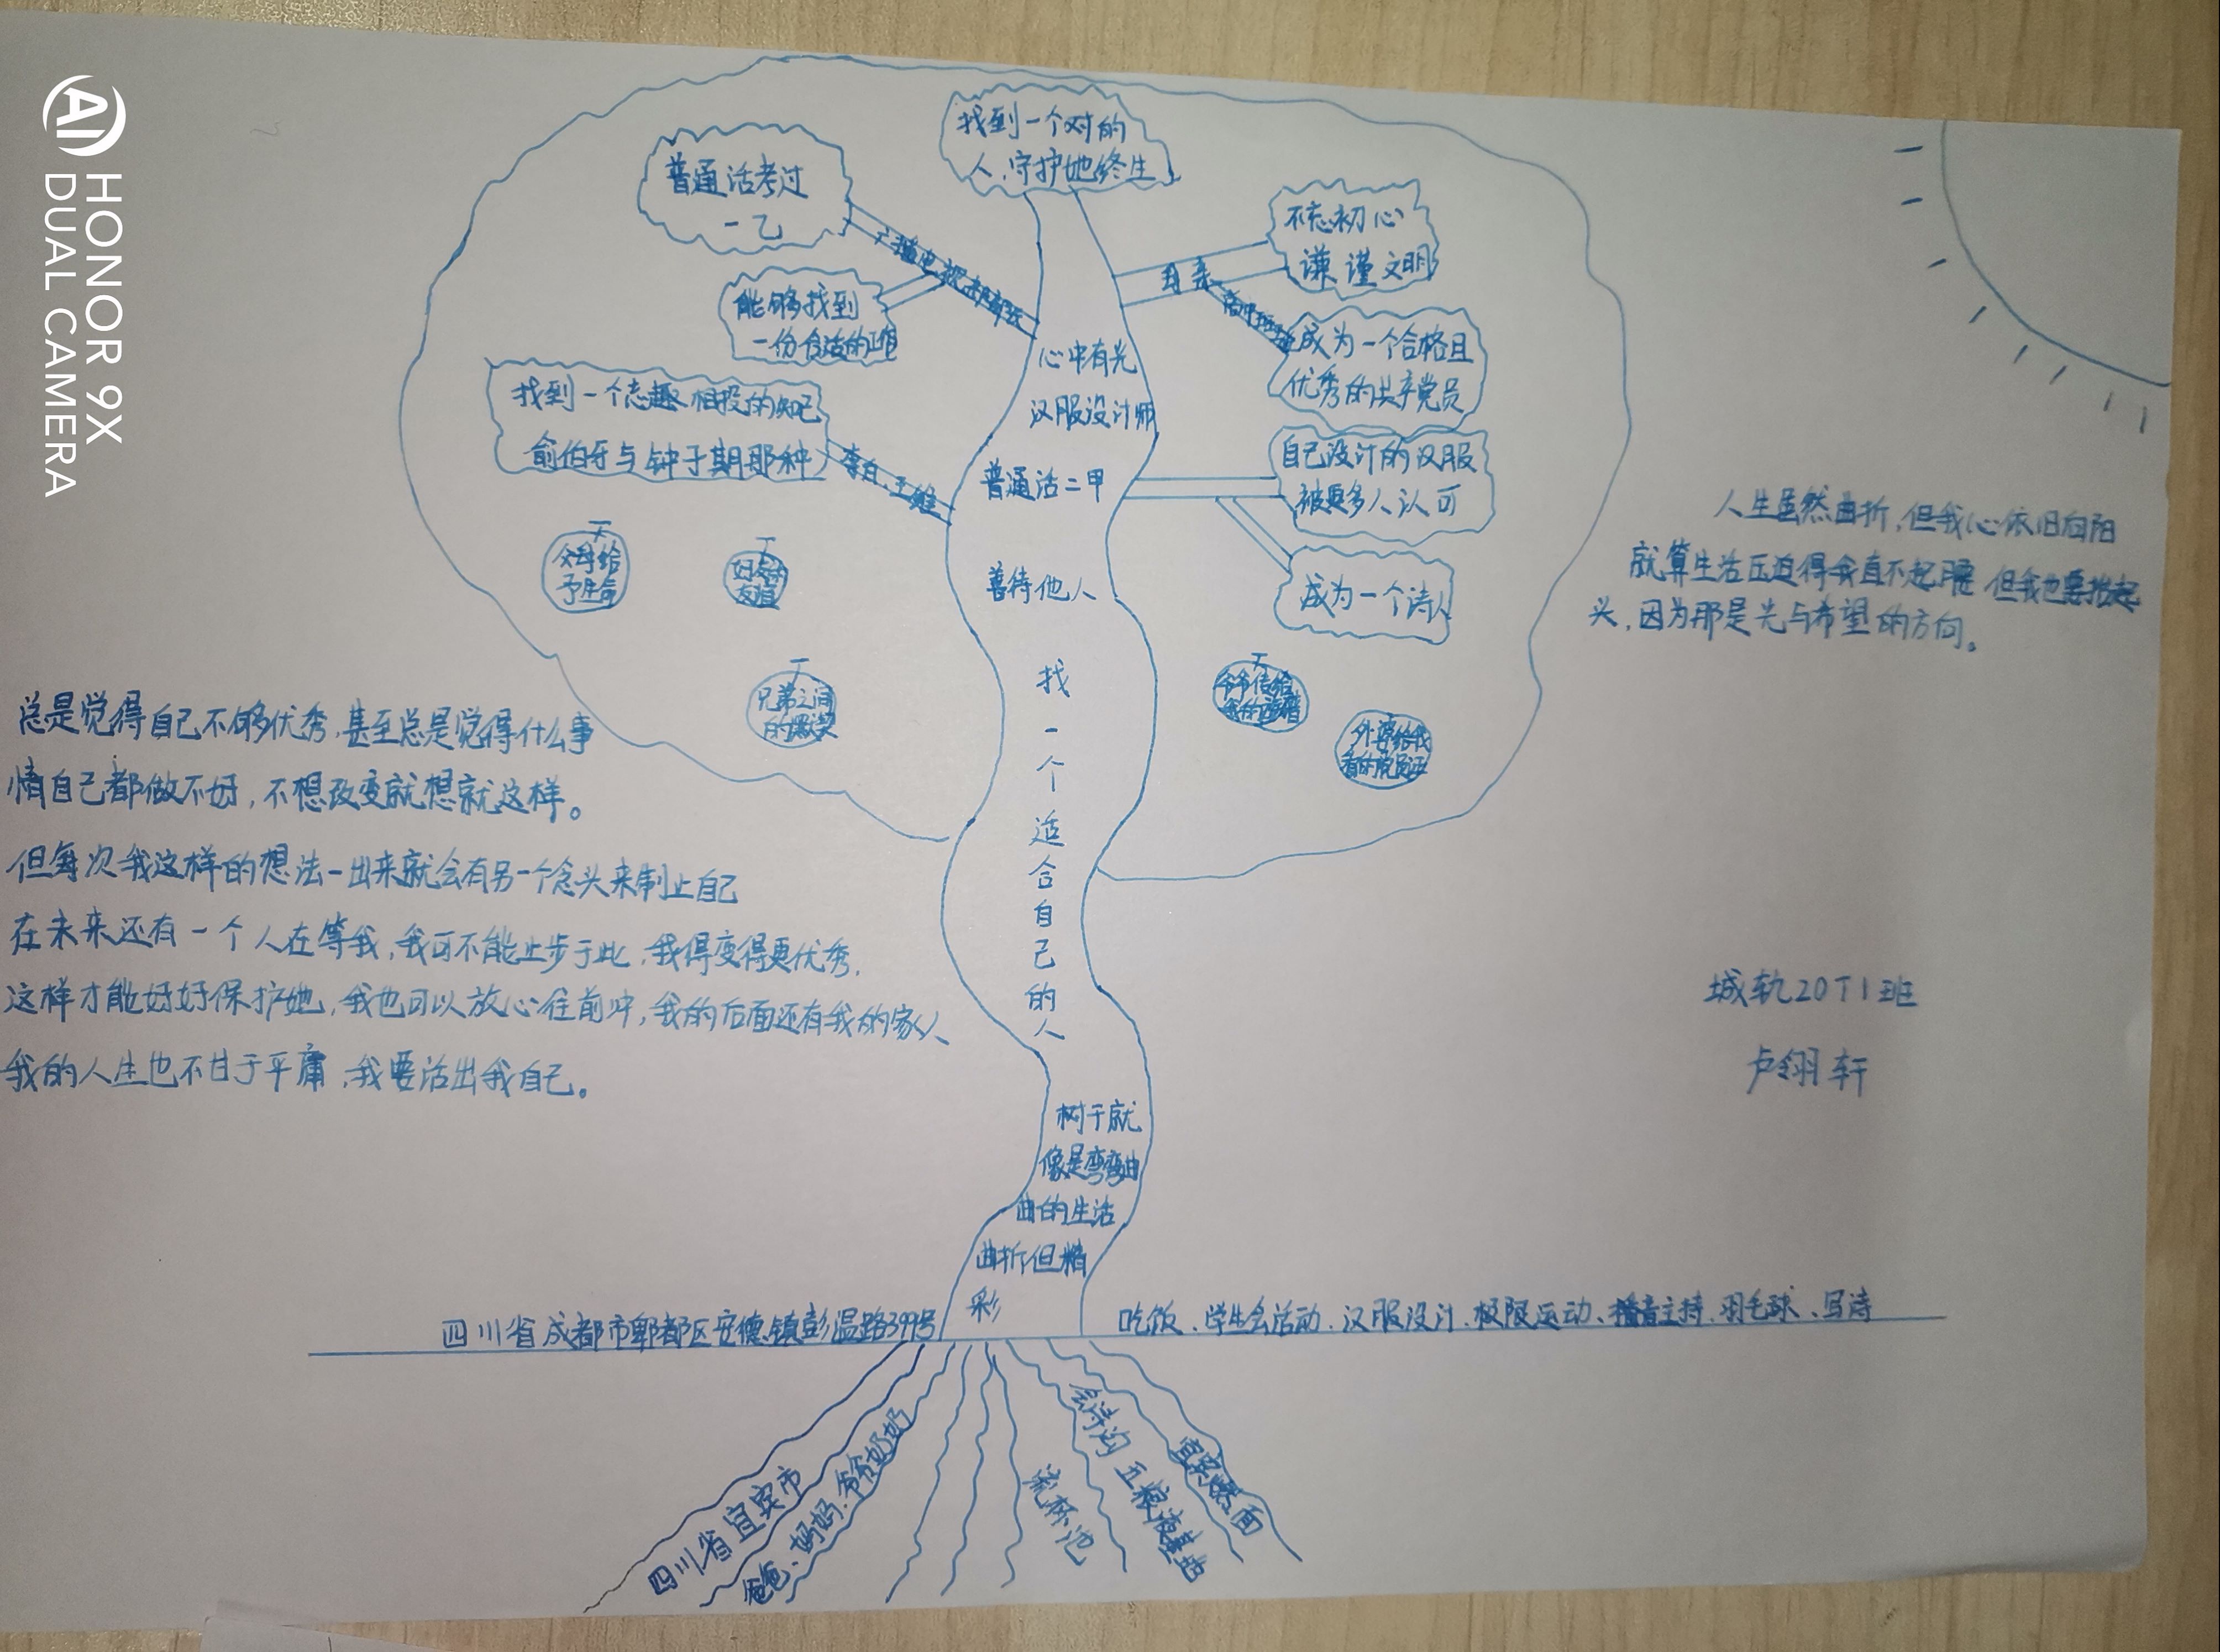 找到一个对的
人，守护她终生
普通话考过
一乙
能够找到
一份合适的工作
找到一个志趣相投的知己
俞伯牙与钟子期那种
李白、王维
不忘初心
谦谨文明
成为一个合格且
优秀的共产党员
自己设计的汉服
被更多人认可
成为一个诗人
心中有光
汉服设计师
普通话二甲
善待他人
找一个适合自己的人
树干就
像是弯弯曲
曲的生活
曲折但精
彩
父母给
予生命
兄弟之间
的默契
外婆给我
看的党员证
人生虽然曲折，但我心依旧向阳
就算生活压迫得我直不起腰 但我也要抬起
头，因为那是光与希望的方向。
总是觉得自己不够优秀，甚至总是觉得什么事
情自己都做不好，不想改变就想就这样。
但每次我这样的想法一出来就会有另一个念头来制止自己
在未来还有一个人在等我，我可不能止步于此，我得变得更优秀，
这样才能好好保护她，我也可以放心往前冲，我的后面还有我的家人
我的人生也不甘于平庸，我要活出我自己。
城轨20T1班
卢翎轩
四川省成都市郫都区安德镇彭温路399号
吃饭、学生会活动、汉服设计、极限运动、播音主持、羽毛球、写诗
四川省宜宾市
爸爸、妈妈、爷爷奶奶
流杯池
五粮液基地
宜宾燃面
HONOR 9X
AI DUAL CAMERA